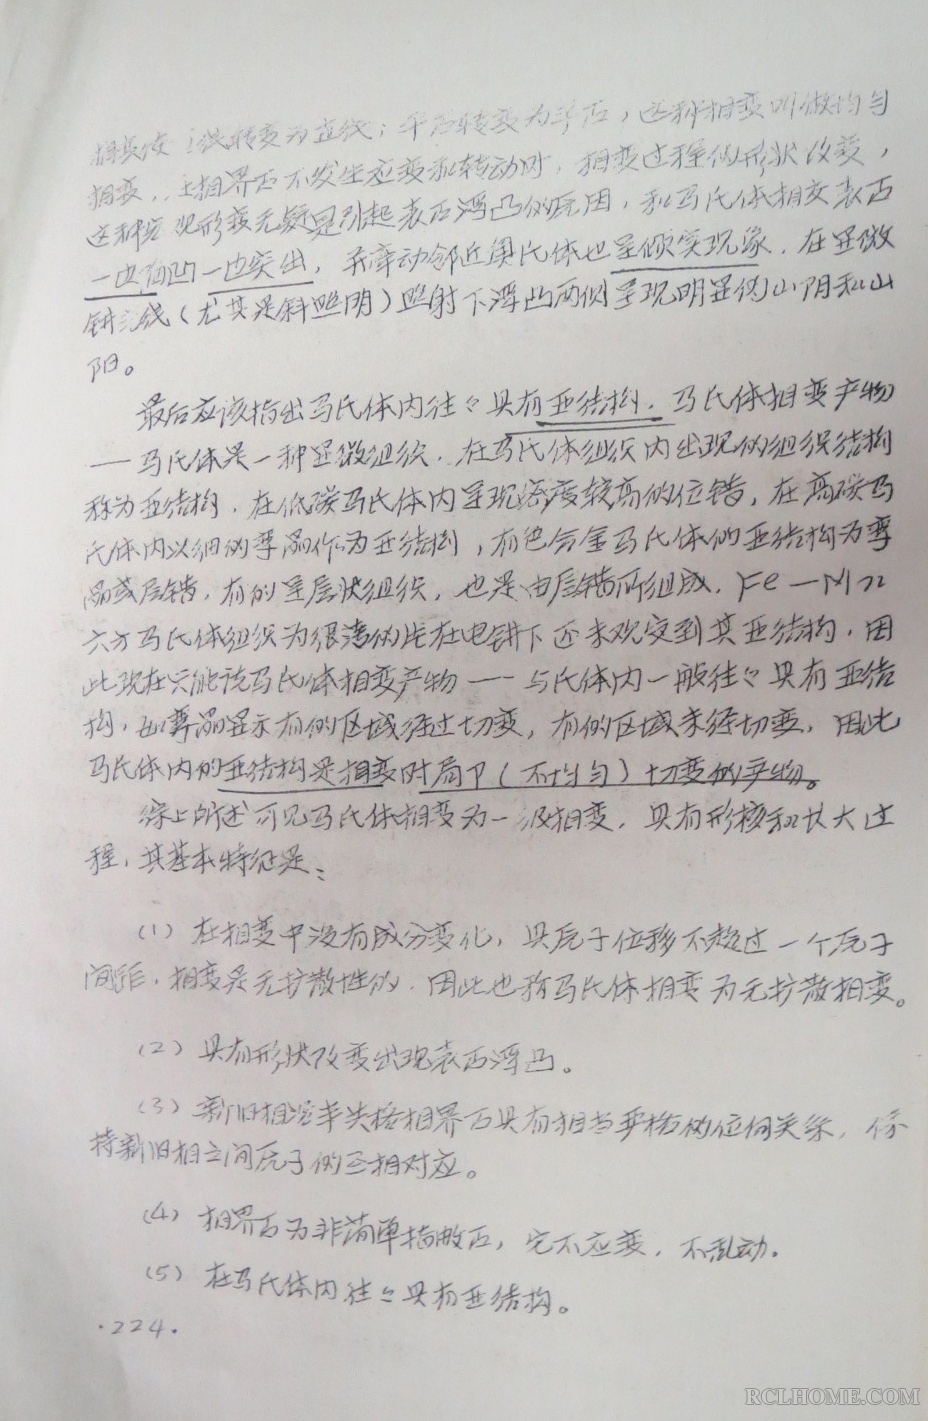 直线转变为直线；平面转变为平面，这种相变叫做均匀
相变，. 在相界面不发生应变和转动时，相变过程的形状改变，
这种宏观形变无疑是引起表面浮凸的原因，和马氏体相变表面
一边陷凹一边突出，并牵动邻近奥氏体也呈倾突现象．在显微
镜光线（尤其是斜照明）照射下浮凸两侧呈现明显的山阴和山
阳。
最后应该指出马氏体内往々具有亚结构．马氏体相变产物
——马氏体是一种显微组织．在马氏体组织内出现的组织结构
称为亚结构．在低碳马氏体内呈现密度较高的位错，在高碳马
氏体内以细的孪晶作为亚结构，有色合金马氏体的亚结构为孪
晶或层错，有的呈层状组织，也是由层错所组成．Fe—Mn
六方马氏体组织为很薄的片在电镜下还未观察到其亚结构．因
此现在只能说马氏体相变产物——马氏体内一般往々具有亚结
构，孪晶显示有的区域经过切变，有的区域未经切变，因此
马氏体内的亚结构是相变时局部（不均匀）切变的产物。
综上所述可见马氏体相变为一级相变，具有形核和长大过
程，其基本特征是：
（1）在相变中没有成分变化，具原子位移不超过一个原子
间距，相变是无扩散性的．因此也称马氏体相变为无扩散相变。
（2）具有形状改变出现表面浮凸。
（3）新旧相沿半共格相界面具有相当严格的位向关系，保
持新旧相之间原子的互相对应。
（4）相界面为非简单指数面，它不应变，不乱动．
（5）在马氏体内往々具有亚结构。
·224·
RCLHOME.COM